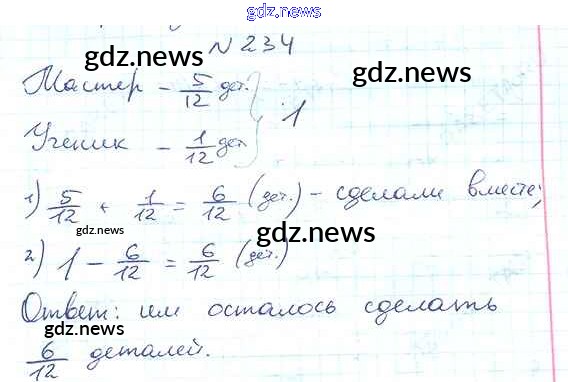 gdz.news
N 234
gdz.news gdz.news
Мастер - 5/12 дет.
Ученик - 1/12 дет
1
1) 5/12 + 1/12 = 6/12 (дет.) - сделали вместе;
gdz.news
2) 1 - 6/12 = 6/12 (дет.)
gdz.news
Ответ: им осталось сделать
gdz.news
6/12 деталей.